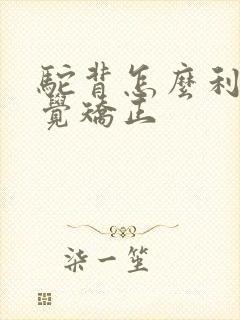 駝背怎麼利
覺矯正
柒一笙